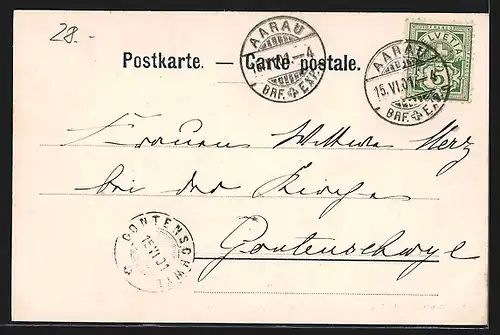 28.-
Postkarte. — Carte postale.
AARAU
15.VI.01.—4
BRF. EXP.
AARAU
15.VI.01.—4
BRF. EXP.
HELVETIA
5
Frauen Wilhelm Merz
bei der Kirche
Gontenschwyl
GONTENSCHWYL
15.VI.01